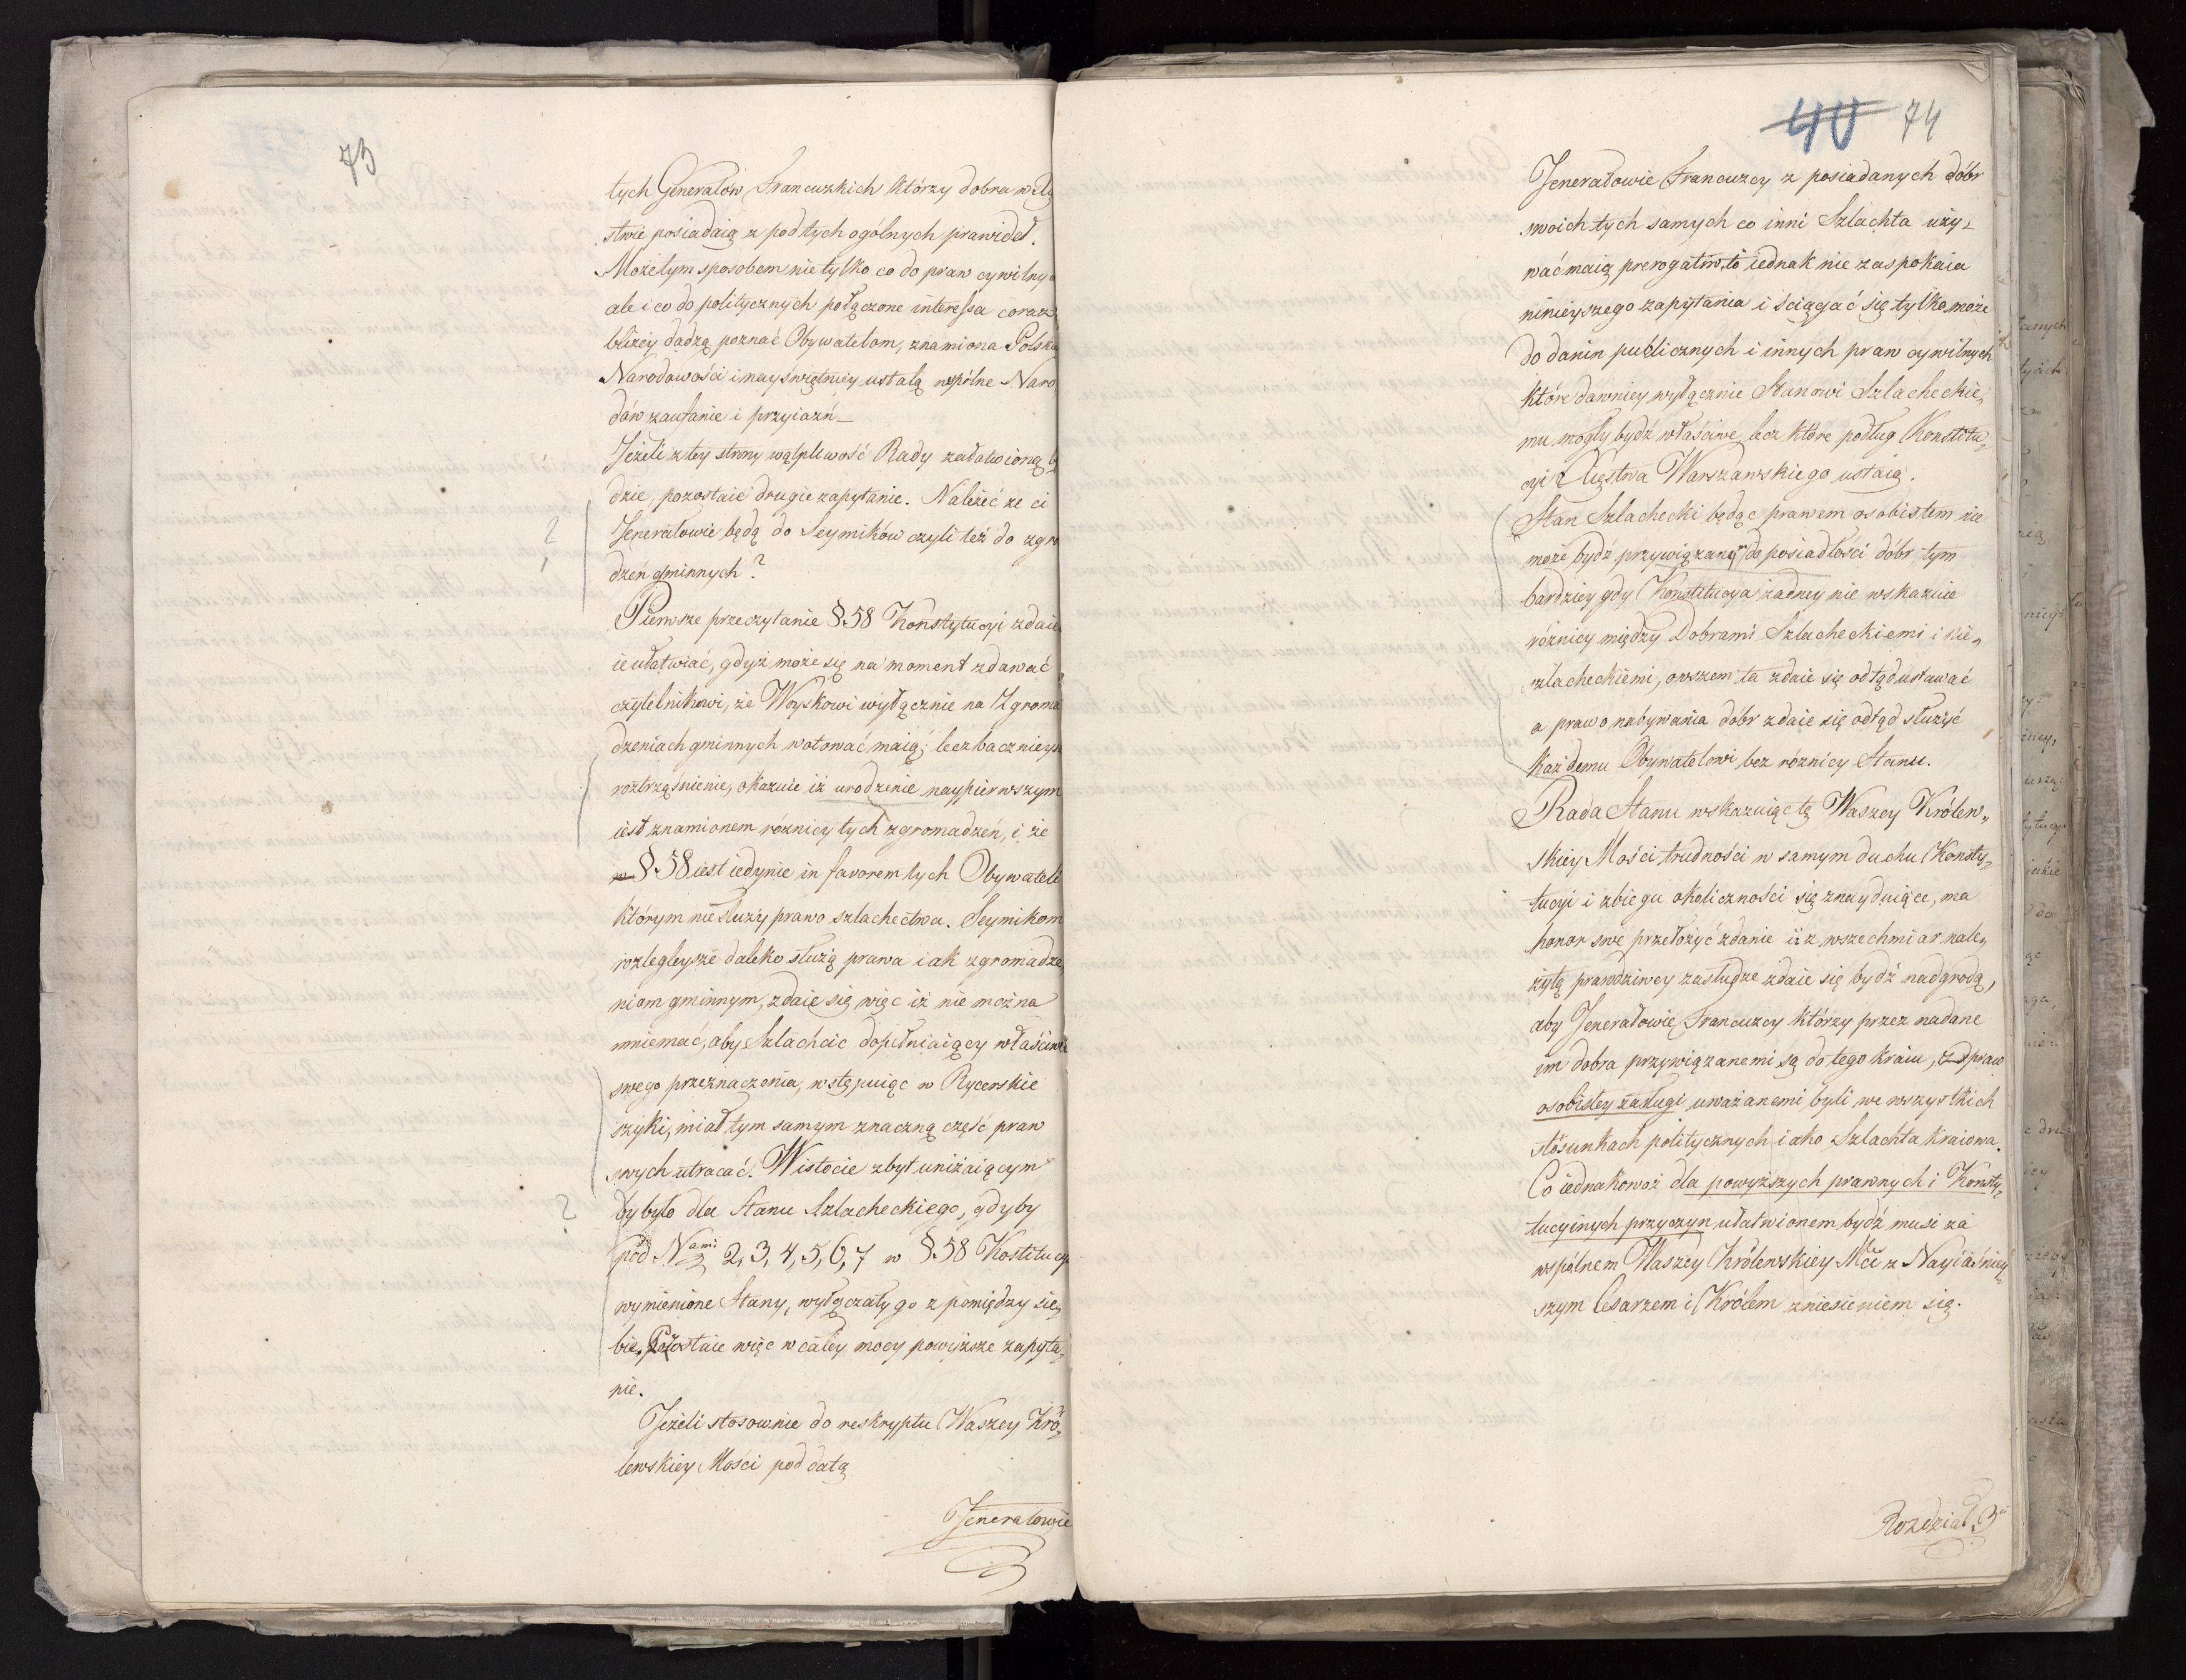 73
tych Generałow Francuzkich którzy dobra w
stwie posiadaią z pod tych ogólnych prawideł.
Może tym sposobem nie tylko co do praw cywilny
ale i co do politycznych połączone interessa coraz
bliżey dadzą poznać Obywatelom, znamiona Polsk
Narodowości i nayświętniey ustalą wspólne Naro
dów zaufanie i przyiaźń_
Jeżeli z tey strony wątpliwość Rady załatwioną b
dzie, pozostaie drugie zapytanie. Należeć że ci
Jenerałowie będą do Seymików czyli też do zgro
dzeń gminnych?
Pierwsze przeczytanie §.58 Konstytucyi zdaie
ie ułatwiać, gdyż może się na moment zdawać
czytelnikowi, że Woyskowi wyłącznie na Zgroma
dzeniach gminnych wotować maią; lecz bacznieys
roztrząśnienie, okazuie iż urodzenie naypierwszym
iest znamionem różnicy tych zgromadzeń, i że
§.58 iest iedynie in favorem tych Obywateli
którym nie służy prawo szlachectwa. Seymikom
rozlegleysze daleko służą prawa iak zgromadze
niom gminnym, zdaie się więc iż nie można
mniemać, aby Szlachcic dopełniaiący właściw
swego przeznaczenia, wstępuiąc w Rycerskie
szyki, miał tym samym znaczną część praw
swych utracać. W istocie zbyt uniżaiącym
by było dla Stanu Szlacheckiego, gdyby
pod Nami 2, 3, 4, 5, 6, 7 w §.58 Kostitucy
wymienione Stany, wyłączały go z pomiędzy sie„
bie, Pozostaie więc w całey mocy powyższe zapyta„
nie.
Jeżeli stosownie do reskryptu Waszey Kró„
lewskiey Mości pod datą
Jenerałowie
40 74
Jenerałowie Francuzcy z posiadanych dóbr
swoich tych samych co inni Szlachta uży=
wać maią prerogatiw, to iednak nie zaspokaia
ninieyszego zapytania i ściągać się tylko może
do danin publicznych i innych praw cywilnych
które dawniey wyłącznie Stanowi Szlacheckie„
mu mogły bydź właściwe, lecz które podług Konstitu„
cyi Xięstwa Warszawskiego ustaią.
Stan Szlachecki będąc prawem osobistem nie
może bydź przywiązanym do posiadłości dóbr tym
bardziey gdy Konstitucya żadney nie wskazuie
różnicy między Dobrami Szlacheckiemi i nie„
szlacheckiemi, owszem ta zdaie się odtąd ustawać
a prawo nabywania dóbr zdaie się odtąd służyć
każdemu Obywatelowi bez różnicy Stanu.
Rada Stanu wskazuiąc tę Waszey Królew„
skiey Mości trudności w samym duchu Konsty„
tucyi i zbiegu okoliczności się znayduiące, ma
honor swe przełożyć zdanie iż z wszechmiar nale„
żytą prawdziwey zasłudze zdaie się bydź nadgrodą,
aby Jenerałowie Francuzcy którzy przez nadane
im dobra przywiązanemi są do tego kraiu, praw
osobistey zasługi uważanemi byli we wszystkich
stósunkach politycznych iako Szlachta kraiowa.
Co iednakowoż dla powyższych prawnych i Konsty„
tucyinych przyczyn ułatwionem bydź musi za
wspólnem Waszey Królewskiey Mci z Nayiaśniey„
szym Cesarzem i Królem zniesieniem się.
Rozdział 3